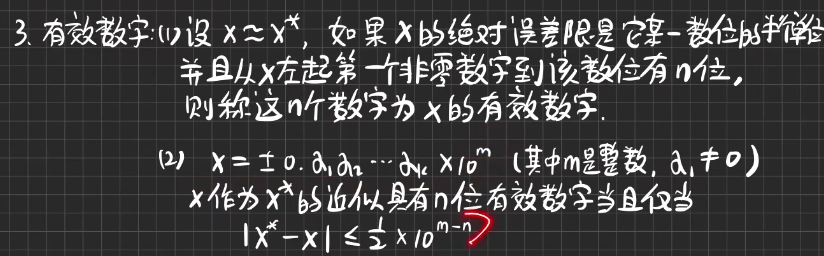 3. 有效数字:(1)设 x≈x*, 如果x的绝对误差限是它某一数位的半单位
并且从x左起第一个非零数字到该数位有n位,
则称这n个数字为x的有效数字.
(2) x=±0.a₁a₂…aₖ×10ᵐ (其中m是整数, a₁≠0)
x作为x*的近似具有n位有效数字当且仅当
|x*-x|≤½×10ᵐ⁻ⁿ